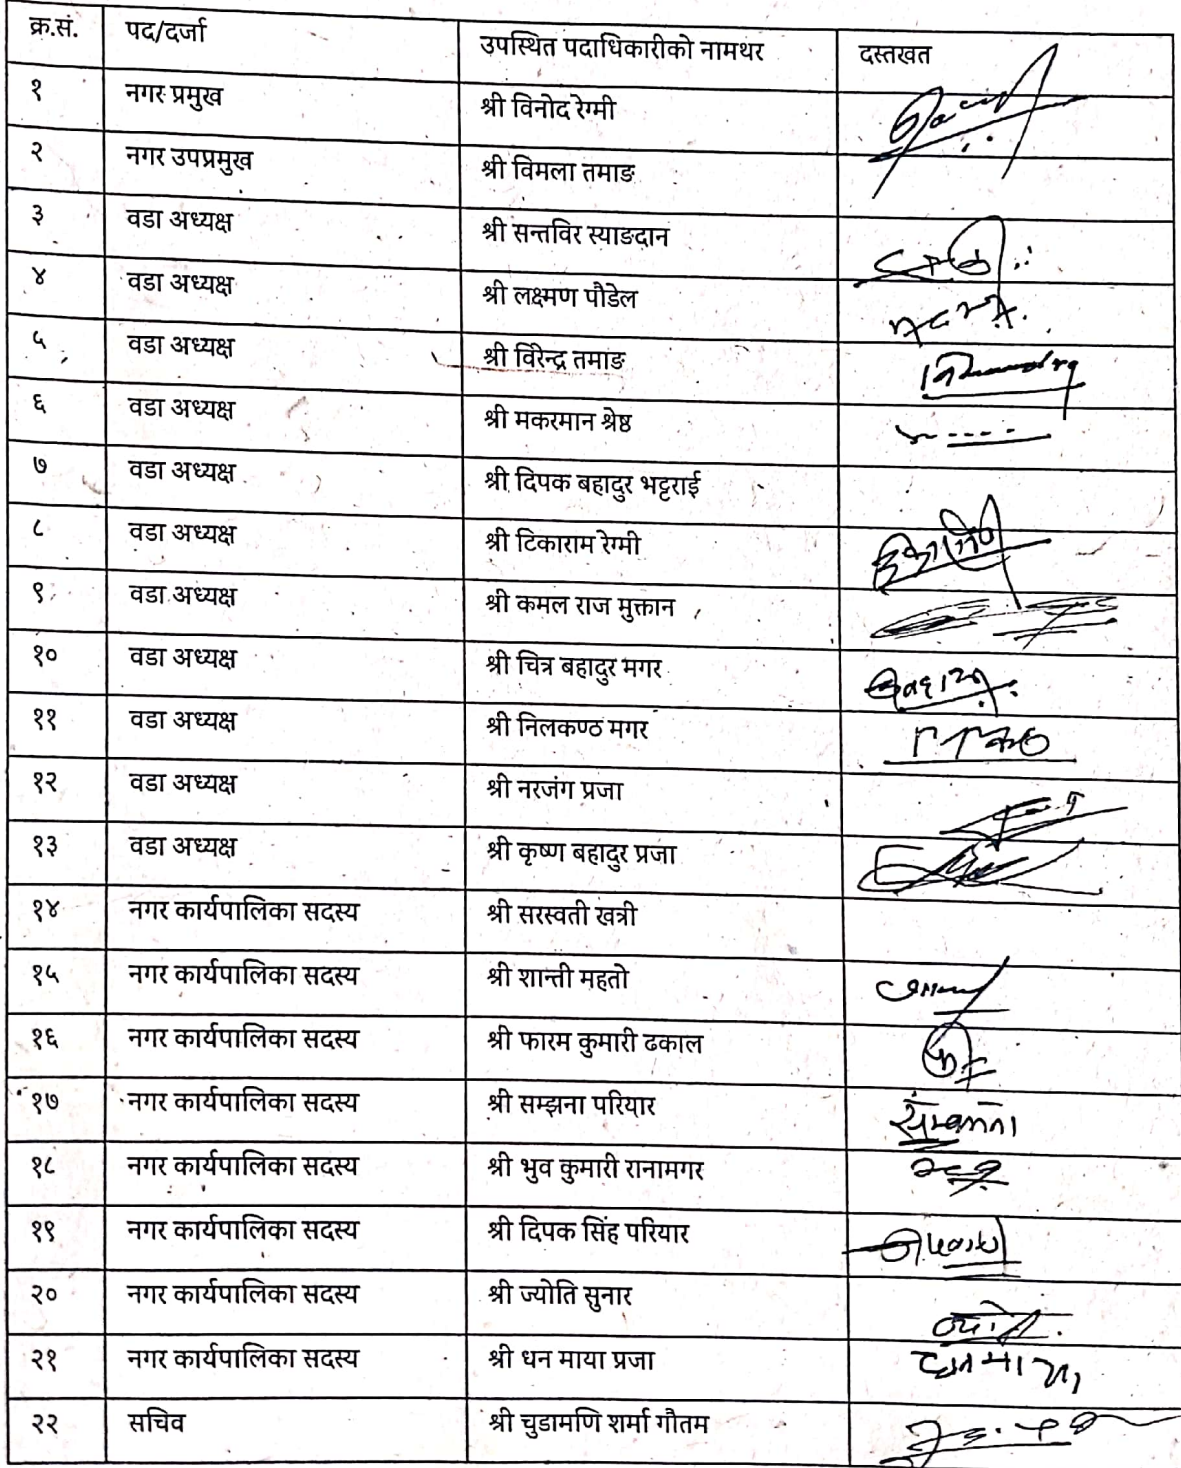 क्र.सं. पद/दर्जा उपस्थित पदाधिकारीको नामथर दस्तखत
१ नगर प्रमुख श्री विनोद रेग्मी
२ नगर उपप्रमुख श्री विमला तमाङ
३ वडा अध्यक्ष श्री सन्तविर स्याङदान
४ वडा अध्यक्ष श्री लक्ष्मण पौडेल
५ वडा अध्यक्ष श्री विरेन्द्र तमाङ
६ वडा अध्यक्ष श्री मकरमान श्रेष्ठ
७ वडा अध्यक्ष श्री दिपक बहादुर भट्टराई
८ वडा अध्यक्ष श्री टिकाराम रेग्मी
९ वडा अध्यक्ष श्री कमल राज मुक्तान
१० वडा अध्यक्ष श्री चित्र बहादुर मगर
११ वडा अध्यक्ष श्री निलकण्ठ मगर
१२ वडा अध्यक्ष श्री नरजंग प्रजा
१३ वडा अध्यक्ष श्री कृष्ण बहादुर प्रजा
१४ नगर कार्यपालिका सदस्य श्री सरस्वती खत्री
१५ नगर कार्यपालिका सदस्य श्री शान्ती महतो
१६ नगर कार्यपालिका सदस्य श्री फारम कुमारी ढकाल
१७ नगर कार्यपालिका सदस्य श्री सम्झना परियार
१८ नगर कार्यपालिका सदस्य श्री भुव कुमारी रानामगर
१९ नगर कार्यपालिका सदस्य श्री दिपक सिंह परियार
२० नगर कार्यपालिका सदस्य श्री ज्योति सुनार
२१ नगर कार्यपालिका सदस्य श्री धन माया प्रजा
२२ सचिव श्री चुडामणि शर्मा गौतम